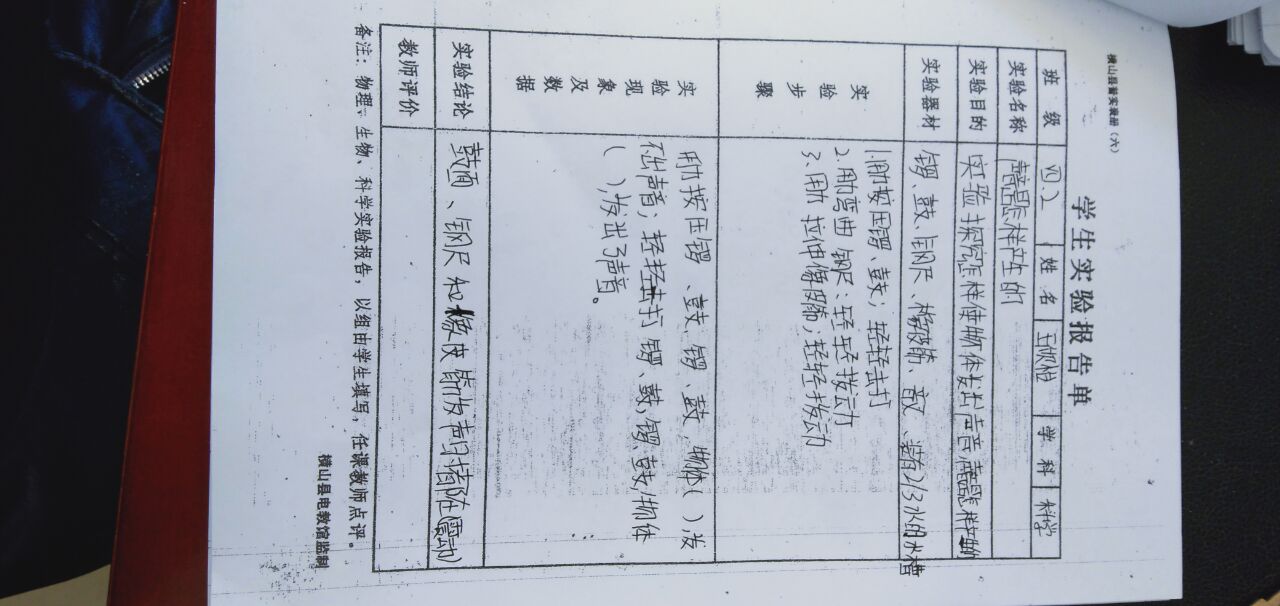 横山县普实表册（六）
学生实验报告单
班级 四.2 姓名 学科 科学
实验名称 声音是怎样产生的
实验目的 实验探究怎样使物体发出声音,声音是怎样产生的
实验器材 锣、鼓、钢尺、橡皮筋、音叉、装有2/3水的水槽
实验步骤 1.用力按压锣、鼓；轻轻击打
2.用力弯曲钢尺；轻轻拨动
3.用力拉伸橡皮筋；轻轻拨动
实验现象及数据 用力按压锣、鼓、锣、鼓,物体( )发
不出声音；轻轻击打锣、鼓,锣、鼓,物体
( )发出了声音。
实验结论 鼓面、钢尺和橡皮筋发声时都在(震动)
教师评价
备注：物理、生物、科学实验报告，以组由学生填写，任课教师点评。
横山县电教馆监制